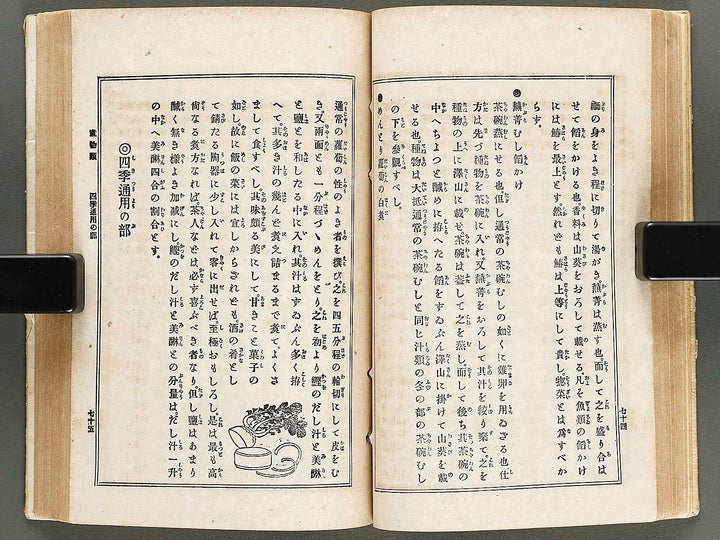 鯛の身をよき程に切りて湯がき蕪菁は蒸す也而して之を盛り合は
せて餡をかける也香料は山葵をおろして載せる凡そ魚類の餡かけ
には鯛を最上とす然れども鯛は上等にして貴し惣菜とは爲すべか
らず。
●蕪菁むし餡かけ
茶碗蒸にせる也但し通常の茶碗むしの如くに雞卵を用ゐざる也仕
方は先づ種物を茶碗に入れ又蕪菁をおろして其汁を絞り棄て之を
種物の上に澤山に載せ茶碗は蓋して之を蒸し而して後ち其茶碗の
中へちよつと醎めに拵へたる餡をずゐぶん澤山に掛けて山葵を載
せる也種物は大抵通常の茶碗むしと同じ汁類の冬の部の茶碗むし
の下を參觀すべし。
●めんとり蘿蔔の白煑
七十四
通常の蘿蔔の性のよき者を撰び之を四五分程の輪切にして皮をむ
き又兩面とも一分程づゝめんをとり之を初より鰹のだし汁と美醂
と鹽とを和したる中に入れ其汁はずゐぶん多く拵
へて其多き汁の幾んど煑え詰まるまで煑て、よくさ
まして食すべし、其味頗る美にして甘きこと菓子の
如し故に飯の菜には宜しからざれども酒の肴とし
て錆たる陶器に少し入れて客に出せば至極おもしろし、是は最も高
尚なる煑方なれば茶人などは必ず喜ぶべき者なり但し鹽はあまり
醎く無き樣よき加減にし鰹のだし汁と美醂との分量はだし汁一升
の中へ美醂四合の割合とす。
◎四季通用の部
煑物類　四季通用の部
七十五